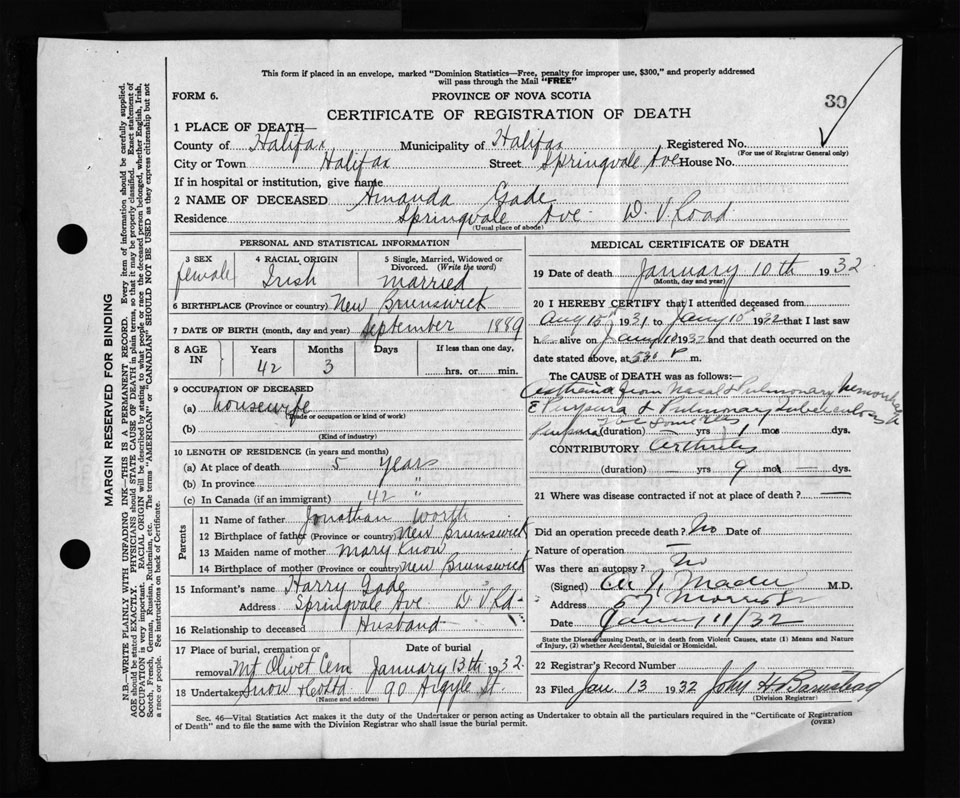 This form if placed in an envelope, marked "Dominion Statistics—Free, penalty for improper use, $300," and properly addressed
will pass through the Mail "FREE"
FORM 6.
PROVINCE OF NOVA SCOTIA
30
CERTIFICATE OF REGISTRATION OF DEATH
1 PLACE OF DEATH—
County of Halifax Municipality of Halifax Registered No.
(For use of Registrar General only)
City or Town Halifax Street Springvale Ave House No.
If in hospital or institution, give name
2 NAME OF DECEASED Amanda Gade
Residence Springvale Ave. D. V. Road
(Usual place of abode)
PERSONAL AND STATISTICAL INFORMATION
3 SEX female
4 RACIAL ORIGIN Irish
5 Single, Married, Widowed or Divorced. (Write the word) Married
6 BIRTHPLACE (Province or country) New Brunswick
7 DATE OF BIRTH (month, day and year) September 1889
8 AGE IN Years 42 Months 3 Days If less than one day, hrs. or min.
9 OCCUPATION OF DECEASED
(a) housewife
(Trade or occupation or kind of work)
(b)
(Kind of industry)
10 LENGTH OF RESIDENCE (in years and months)
(a) At place of death 5 years
(b) In province "
(c) In Canada (if an immigrant) 42 "
Parents
11 Name of father Jonathan Worth
12 Birthplace of father (Province or country) New Brunswick
13 Maiden name of mother Mary Know
14 Birthplace of mother (Province or country) New Brunswick
15 Informant's name Harry Gade
Address Springvale Ave D V Rd.
16 Relationship to deceased Husband
17 Place of burial, cremation or removal Mt Olivet Cem
Date of burial January 13th 1932.
18 Undertaker Snow & Co Ltd 90 Argyle St.
(Name and address)
MEDICAL CERTIFICATE OF DEATH
19 Date of death January 10th 1932
(Month, day and year)
20 I HEREBY CERTIFY that I attended deceased from
Aug 15th 1931 to Jany 10th 1932 that I last saw
h alive on Jany 10 1932 and that death occurred on the
date stated above, at 5.30 P m.
The CAUSE OF DEATH was as follows:—
from Nasal & Pulmonary hemorrhage
Purpura & Pulmonary Tuberculosis
Purpura (duration) — yrs 1 mos — dys.
CONTRIBUTORY Arthritis
(duration) — yrs 9 mos — dys.
21 Where was disease contracted if not at place of death? —
Did an operation precede death? No Date of
Nature of operation —
Was there an autopsy? No
(Signed) Mader M.D.
Address 57 Morris St
Date Jany 11/32
State the Disease causing Death, or in death from Violent Causes, state (1) Means and Nature
of Injury, (2) whether Accidental, Suicidal or Homicidal.
22 Registrar's Record Number
23 Filed Jan. 13 1932 John H Barnstead
(Division Registrar)
Sec. 46—Vital Statistics Act makes it the duty of the Undertaker or person acting as Undertaker to obtain all the particulars required in the "Certificate of Registration
of Death" and to file the same with the Division Registrar who shall issue the burial permit.
(OVER)
MARGIN RESERVED FOR BINDING
N.B.—WRITE PLAINLY WITH UNFADING INK—THIS IS A PERMANENT RECORD. Every item of information should be carefully supplied.
AGE should be stated EXACTLY. PHYSICIANS should STATE CAUSE OF DEATH in plain terms, so that it may be properly classified. Exact statement of
OCCUPATION is very important. RACIAL ORIGIN will be described by stating to what people or race the deceased person belonged, whether English, Irish,
Scotch, French, German, Russian, Ruthenian, etc. The terms "AMERICAN" or "CANADIAN" SHOULD NOT BE USED as they express citizenship but not
a race or people. See instructions on back of Certificate.